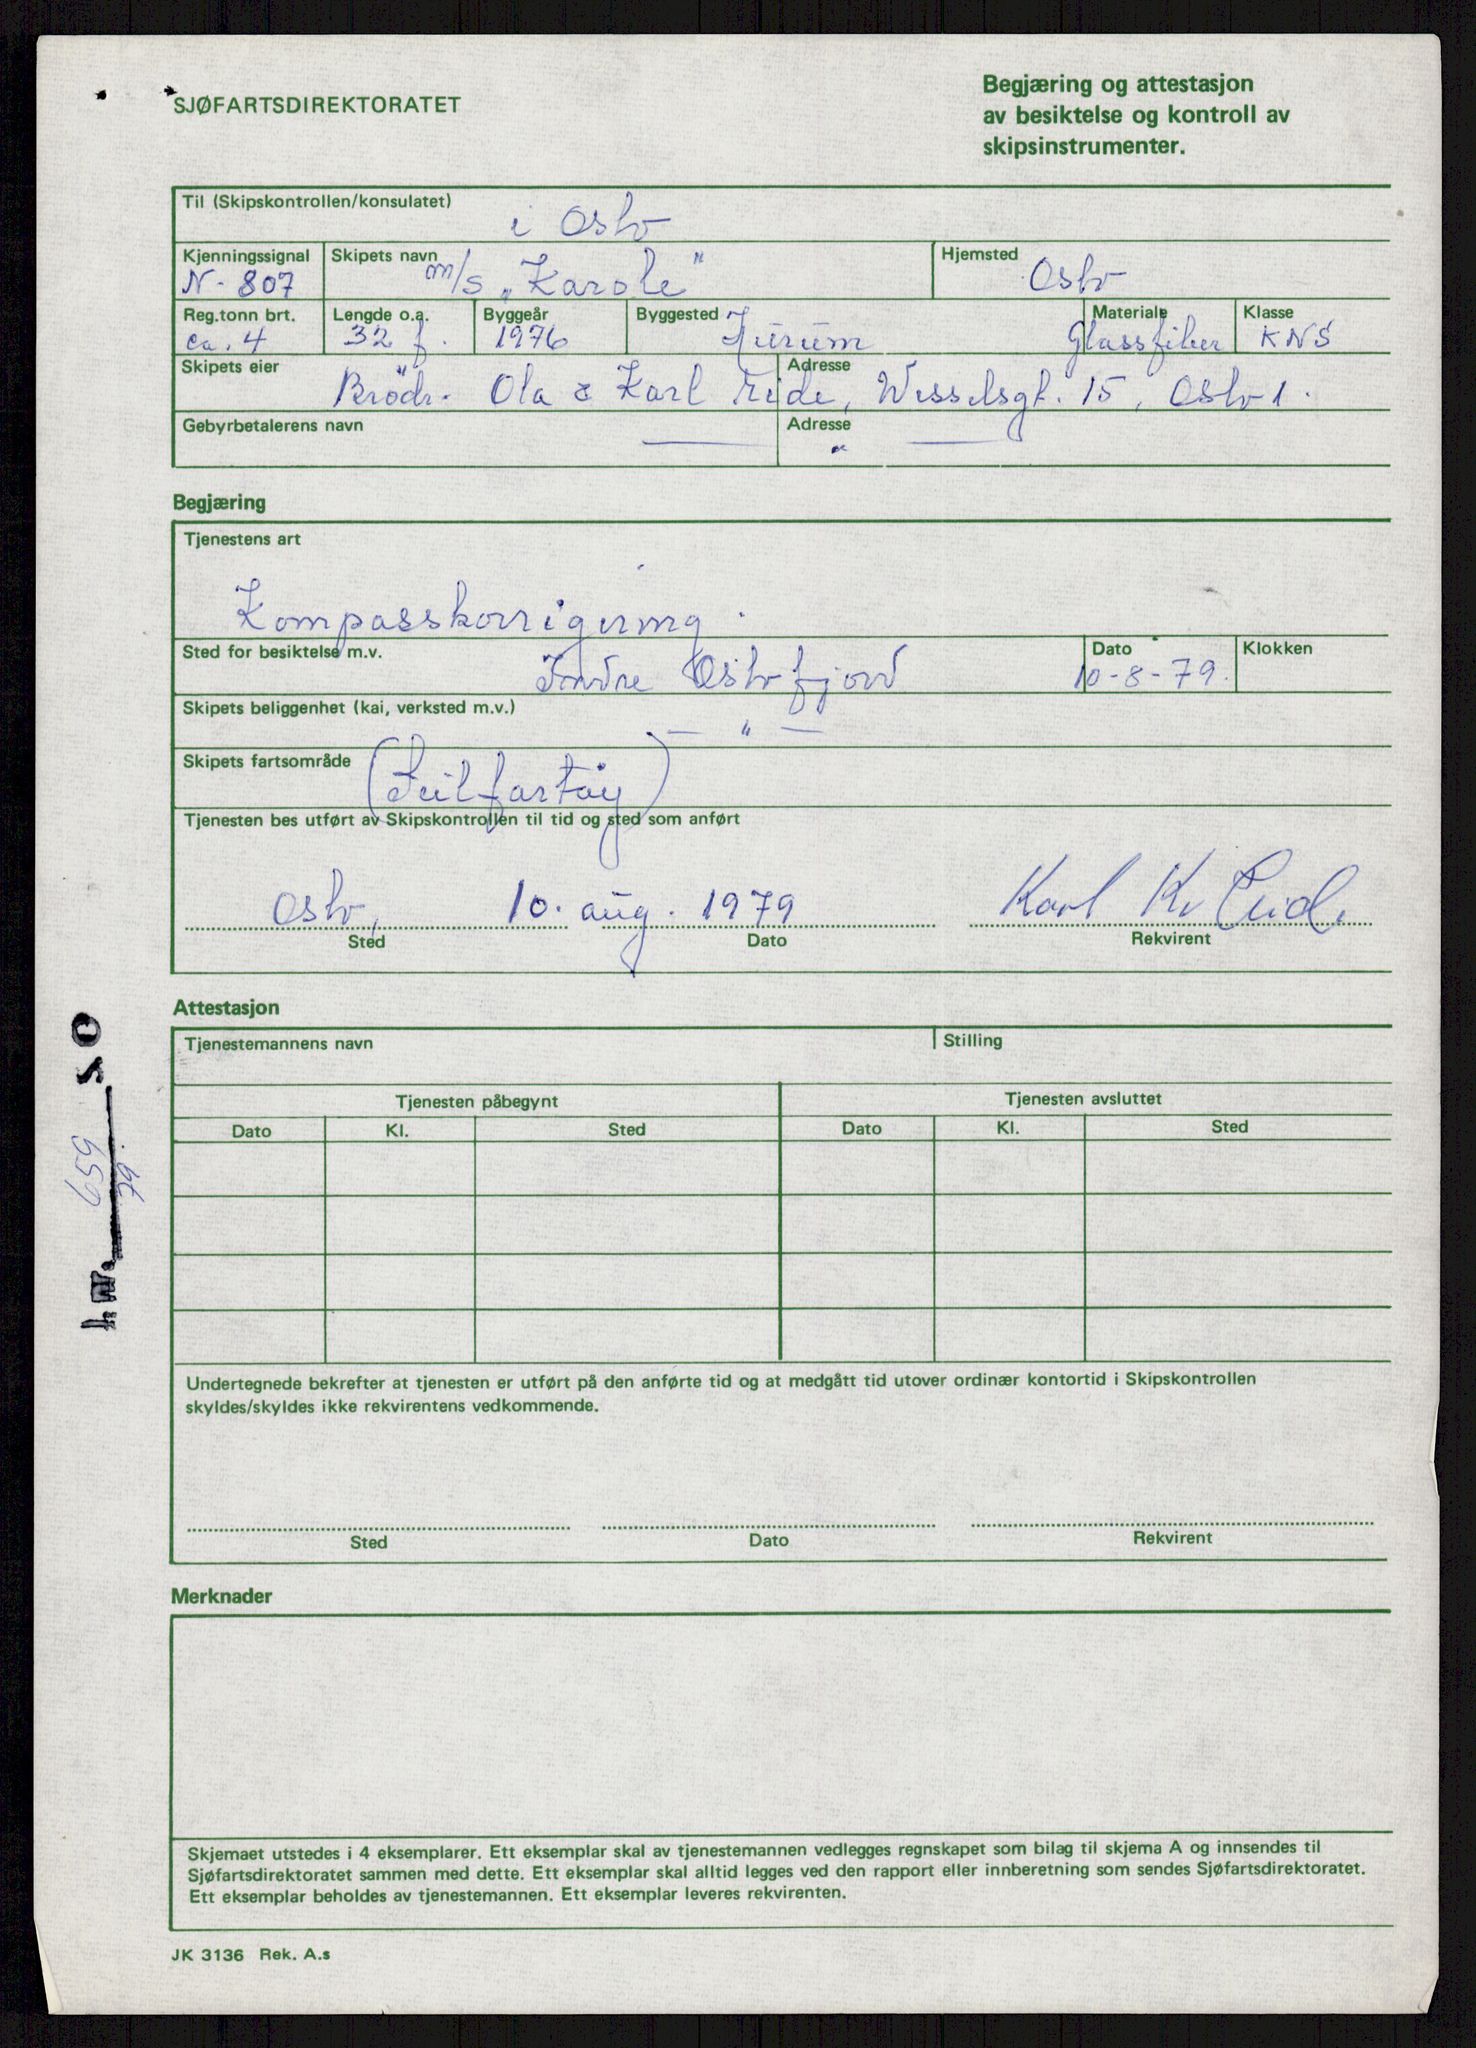 SJØFARTSDIREKTORATET
Begjæring og attestasjon
av besiktelse og kontroll av
skipsinstrumenter.
Til (Skipskontrollen/konsulatet)
i Oslo
Kjenningssignal Skipets navn Hjemsted
N-807 m/s „Karole" Oslo
Reg.tonn brt. Lengde o.a. Byggeår Byggested Materiale Klasse
ca. 4 32 f. 1976 Hurum Glassfiber KNS
Skipets eier Adresse
Brödr. Ola & Karl Eide, Wesselsgt. 15, Oslo 1.
Gebyrbetalerens navn Adresse
— " —
Begjæring
Tjenestens art
Kompasskorrigering.
Sted for besiktelse m.v. Dato Klokken
Indre Oslofjord 10-8-79.
Skipets beliggenhet (kai, verksted m.v.)
— " —
Skipets fartsområde
(Seilfartöy)
Tjenesten bes utført av Skipskontrollen til tid og sted som anført
Oslo, 10. aug. 1979 Karl Kr Eide
Sted Dato Rekvirent
Attestasjon
Tjenestemannens navn Stilling
Tjenesten påbegynt Tjenesten avsluttet
Dato Kl. Sted Dato Kl. Sted
Undertegnede bekrefter at tjenesten er utført på den anførte tid og at medgått tid utover ordinær kontortid i Skipskontrollen
skyldes/skyldes ikke rekvirentens vedkommende.
Sted Dato Rekvirent
Merknader
Skjemaet utstedes i 4 eksemplarer. Ett eksemplar skal av tjenestemannen vedlegges regnskapet som bilag til skjema A og innsendes til
Sjøfartsdirektoratet sammen med dette. Ett eksemplar skal alltid legges ved den rapport eller innberetning som sendes Sjøfartsdirektoratet.
Ett eksemplar beholdes av tjenestemannen. Ett eksemplar leveres rekvirenten.
JK 3136 Rek. A.s
659
79.